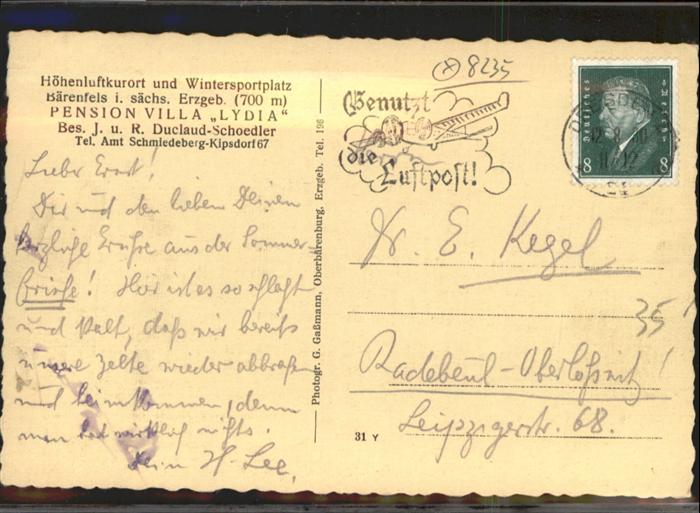 Höhenluftkurort und Wintersportplatz
Bärenfels i. sächs. Erzgeb. (700 m)
PENSION VILLA „LYDIA“
Bes. J. u. R. Duclaud-Schoedler
Tel. Amt Schmiedeberg-Kipsdorf 67
Lieber Ernst!
Dir und den lieben Deinen
herzliche Grüße aus der Sommer-
frische! Hier ist es so schlecht
und kalt, daß wir bereits
unsere Zelte wieder abbrechen
und heimkommen, denn
man hat wirklich nichts.
Dein H.
Photogr. G. Gaßmann, Oberbärenburg, Erzgeb. Tel. 196
8235
Benutzt
die
Luftpost!
Deutsches Reich
8 8
DRESDEN
11-12
Dr. E. Kegel
35
Radebeul-Oberlößnitz!
Leipzigerstr. 68.
31 Y